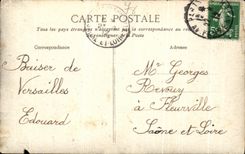 CARTE POSTALE
Tous les pays étrangers n'acceptent pas la correspondance au
Se renseigner à la Poste
Correspondance
Adresse
Baiser de
Versailles
Edouard
Mr Georges
à Fleurville
Saône et Loire
ET-LOIRE